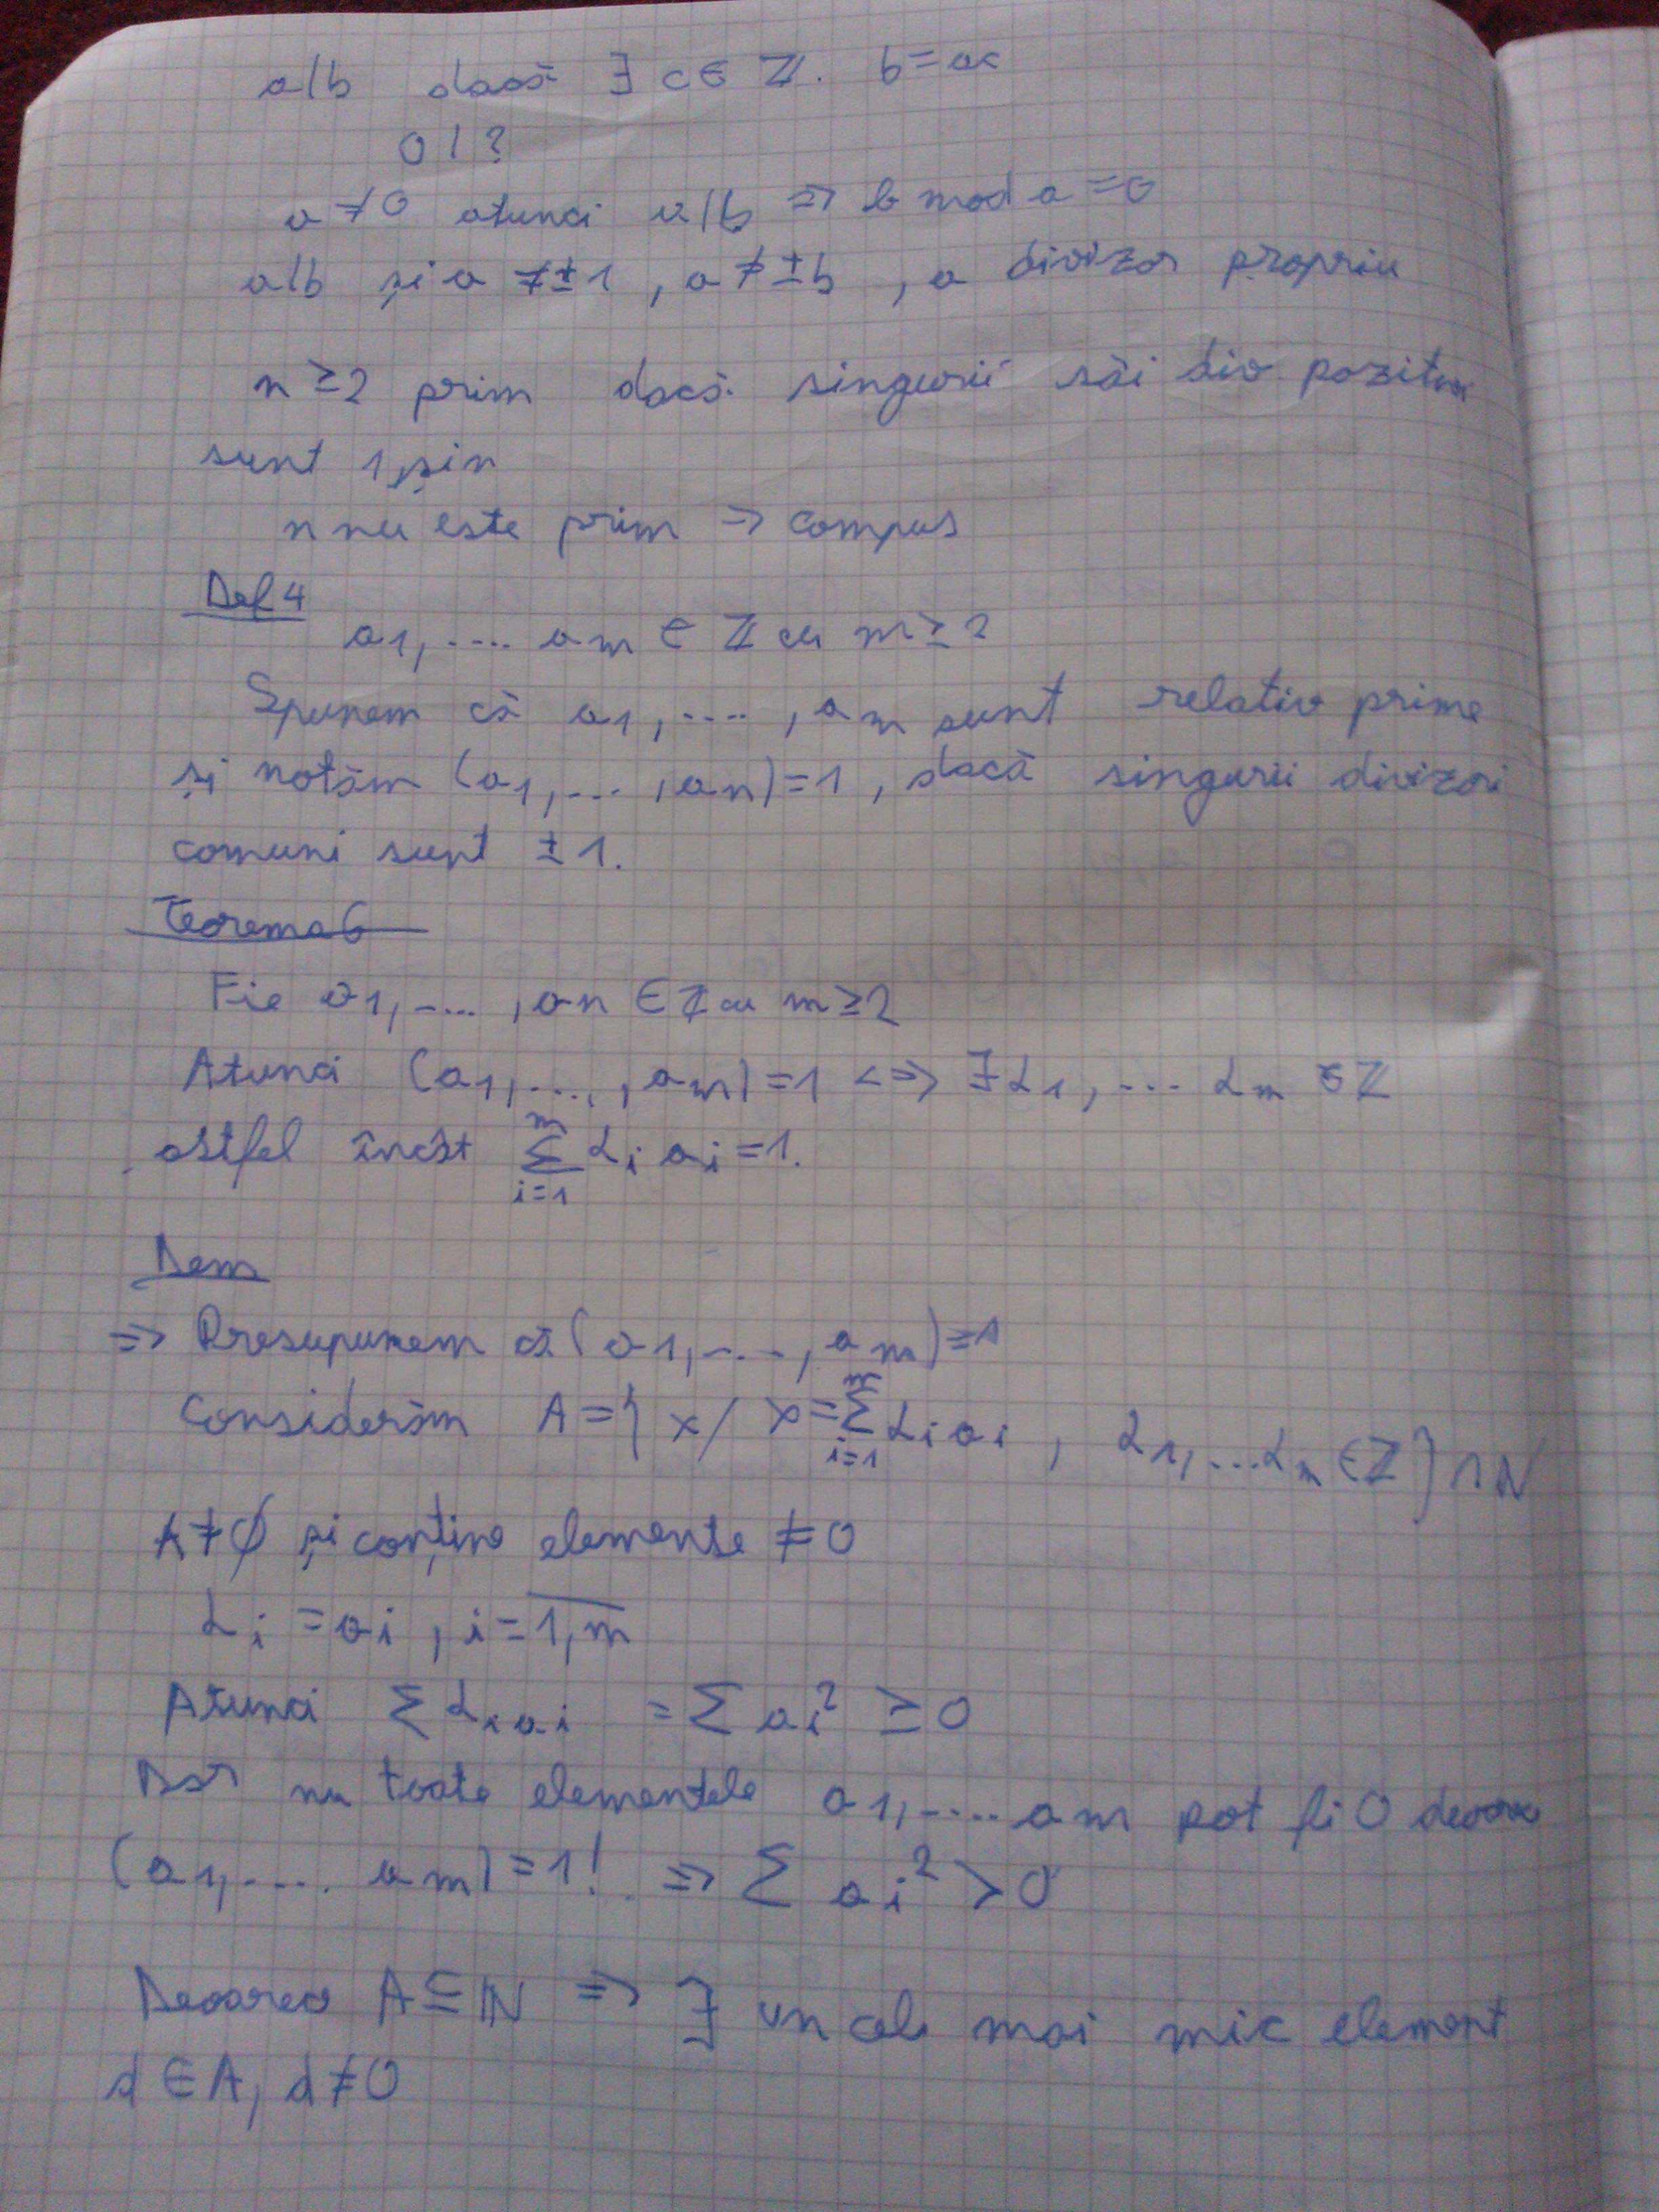 a|b dacă ∃ c∈ℤ. b=ac
0|?
a≠0 atunci a|b => b mod a=0
a|b și a≠±1, a≠±b, a divizor propriu
n≥2 prim dacă singurii săi div. pozitivi
sunt 1 și n
n nu este prim -> compus
Def 4
a1,.... am ∈ ℤ cu m≥2
Spunem că a1,...., am sunt relativ prime
și notăm (a1,..., an)=1, dacă singurii divizori
comuni sunt ±1.
Teorema 6
Fie a1,...., an ∈ ℤ cu m≥2
Atunci (a1,..., am)=1 <=> ∃ α1,... αm ∈ ℤ
astfel încât ∑_{i=1}^{m} αi ai=1.
Dem
=> Presupunem că (a1,..., am)=1
Considerăm A={x/ x=∑_{i=1}^{m} αi ai, α1,...αm ∈ℤ}∩ℕ
A≠∅ și conține elemente ≠0
αi=ai, i=\overline{1,m}
Atunci ∑ αi ai = ∑ ai² ≥0
Dar nu toate elementele a1,.... am pot fi 0 deoarece
(a1,.... am)=1! => ∑ ai² >0
Deoarece A⊆ℕ => ∃ un cel mai mic element
d∈A, d≠0